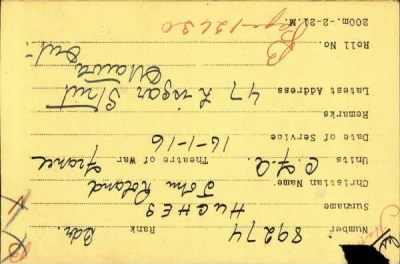 Number 89274 Rank Bdr.
Surname HUGHES
Christian Name John Roland
Units C.F.A. Theatre of War France
Date of Service 16-1-16
Remarks
Latest Address 47 Lisgar Street
Ottawa
Ont.
Roll No. B
200m.-2-21.M. Page 12630